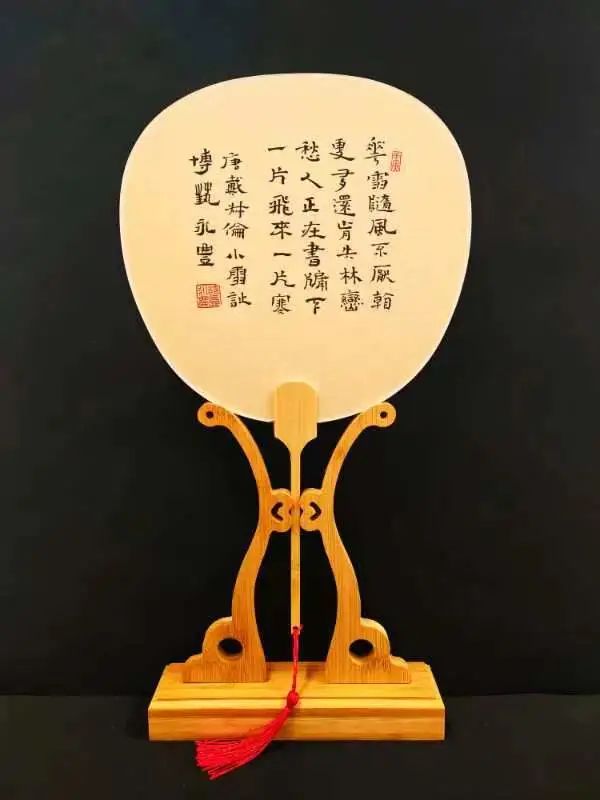 華雪隨風不厭看
更多還肯失林巒
愁人正在書牖下
一片飛來一片寒
唐戴叔倫小雪詩
博藝永豐